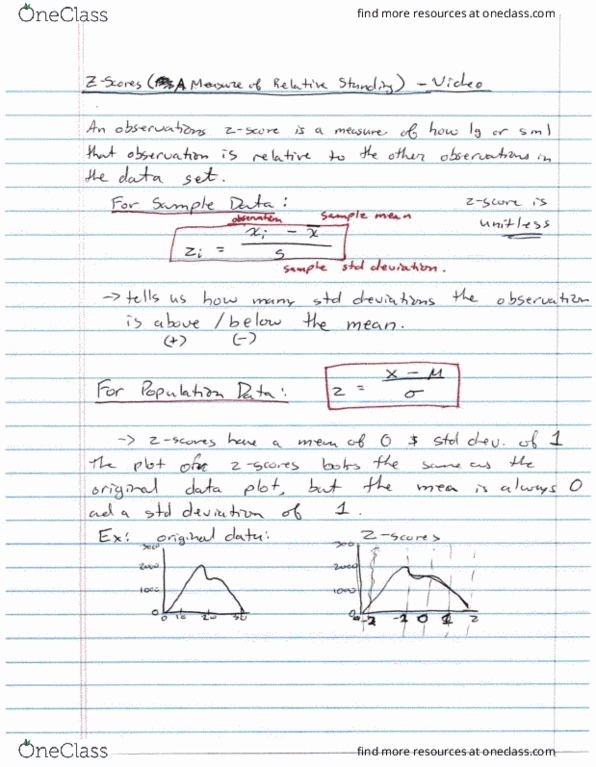 OneClass
find more resources at oneclass.com
Z-Scores (A Measure of Relative Standing) - Video
An observations z-score is a measure of how lg or sml
that observation is relative to the other observations in
the data set.
For Sample Data:
z-score is
unitless
observation
sample mean
zi = xi - x̄ / s
sample std deviation.
-> tells us how many std deviations the observation
is above / below the mean.
(+) (-)
For Population Data:
z = x - μ / σ
-> z-scores have a mean of 0 & std dev. of 1
The plot of z-scores looks the same as the
original data plot, but the mea is always 0
ad a std deviation of 1.
Ex: original data:
Z-scores
2000
1000
0 10 20
2000
1000
0 -2 -1 0 1 2
OneClass
find more resources at oneclass.com